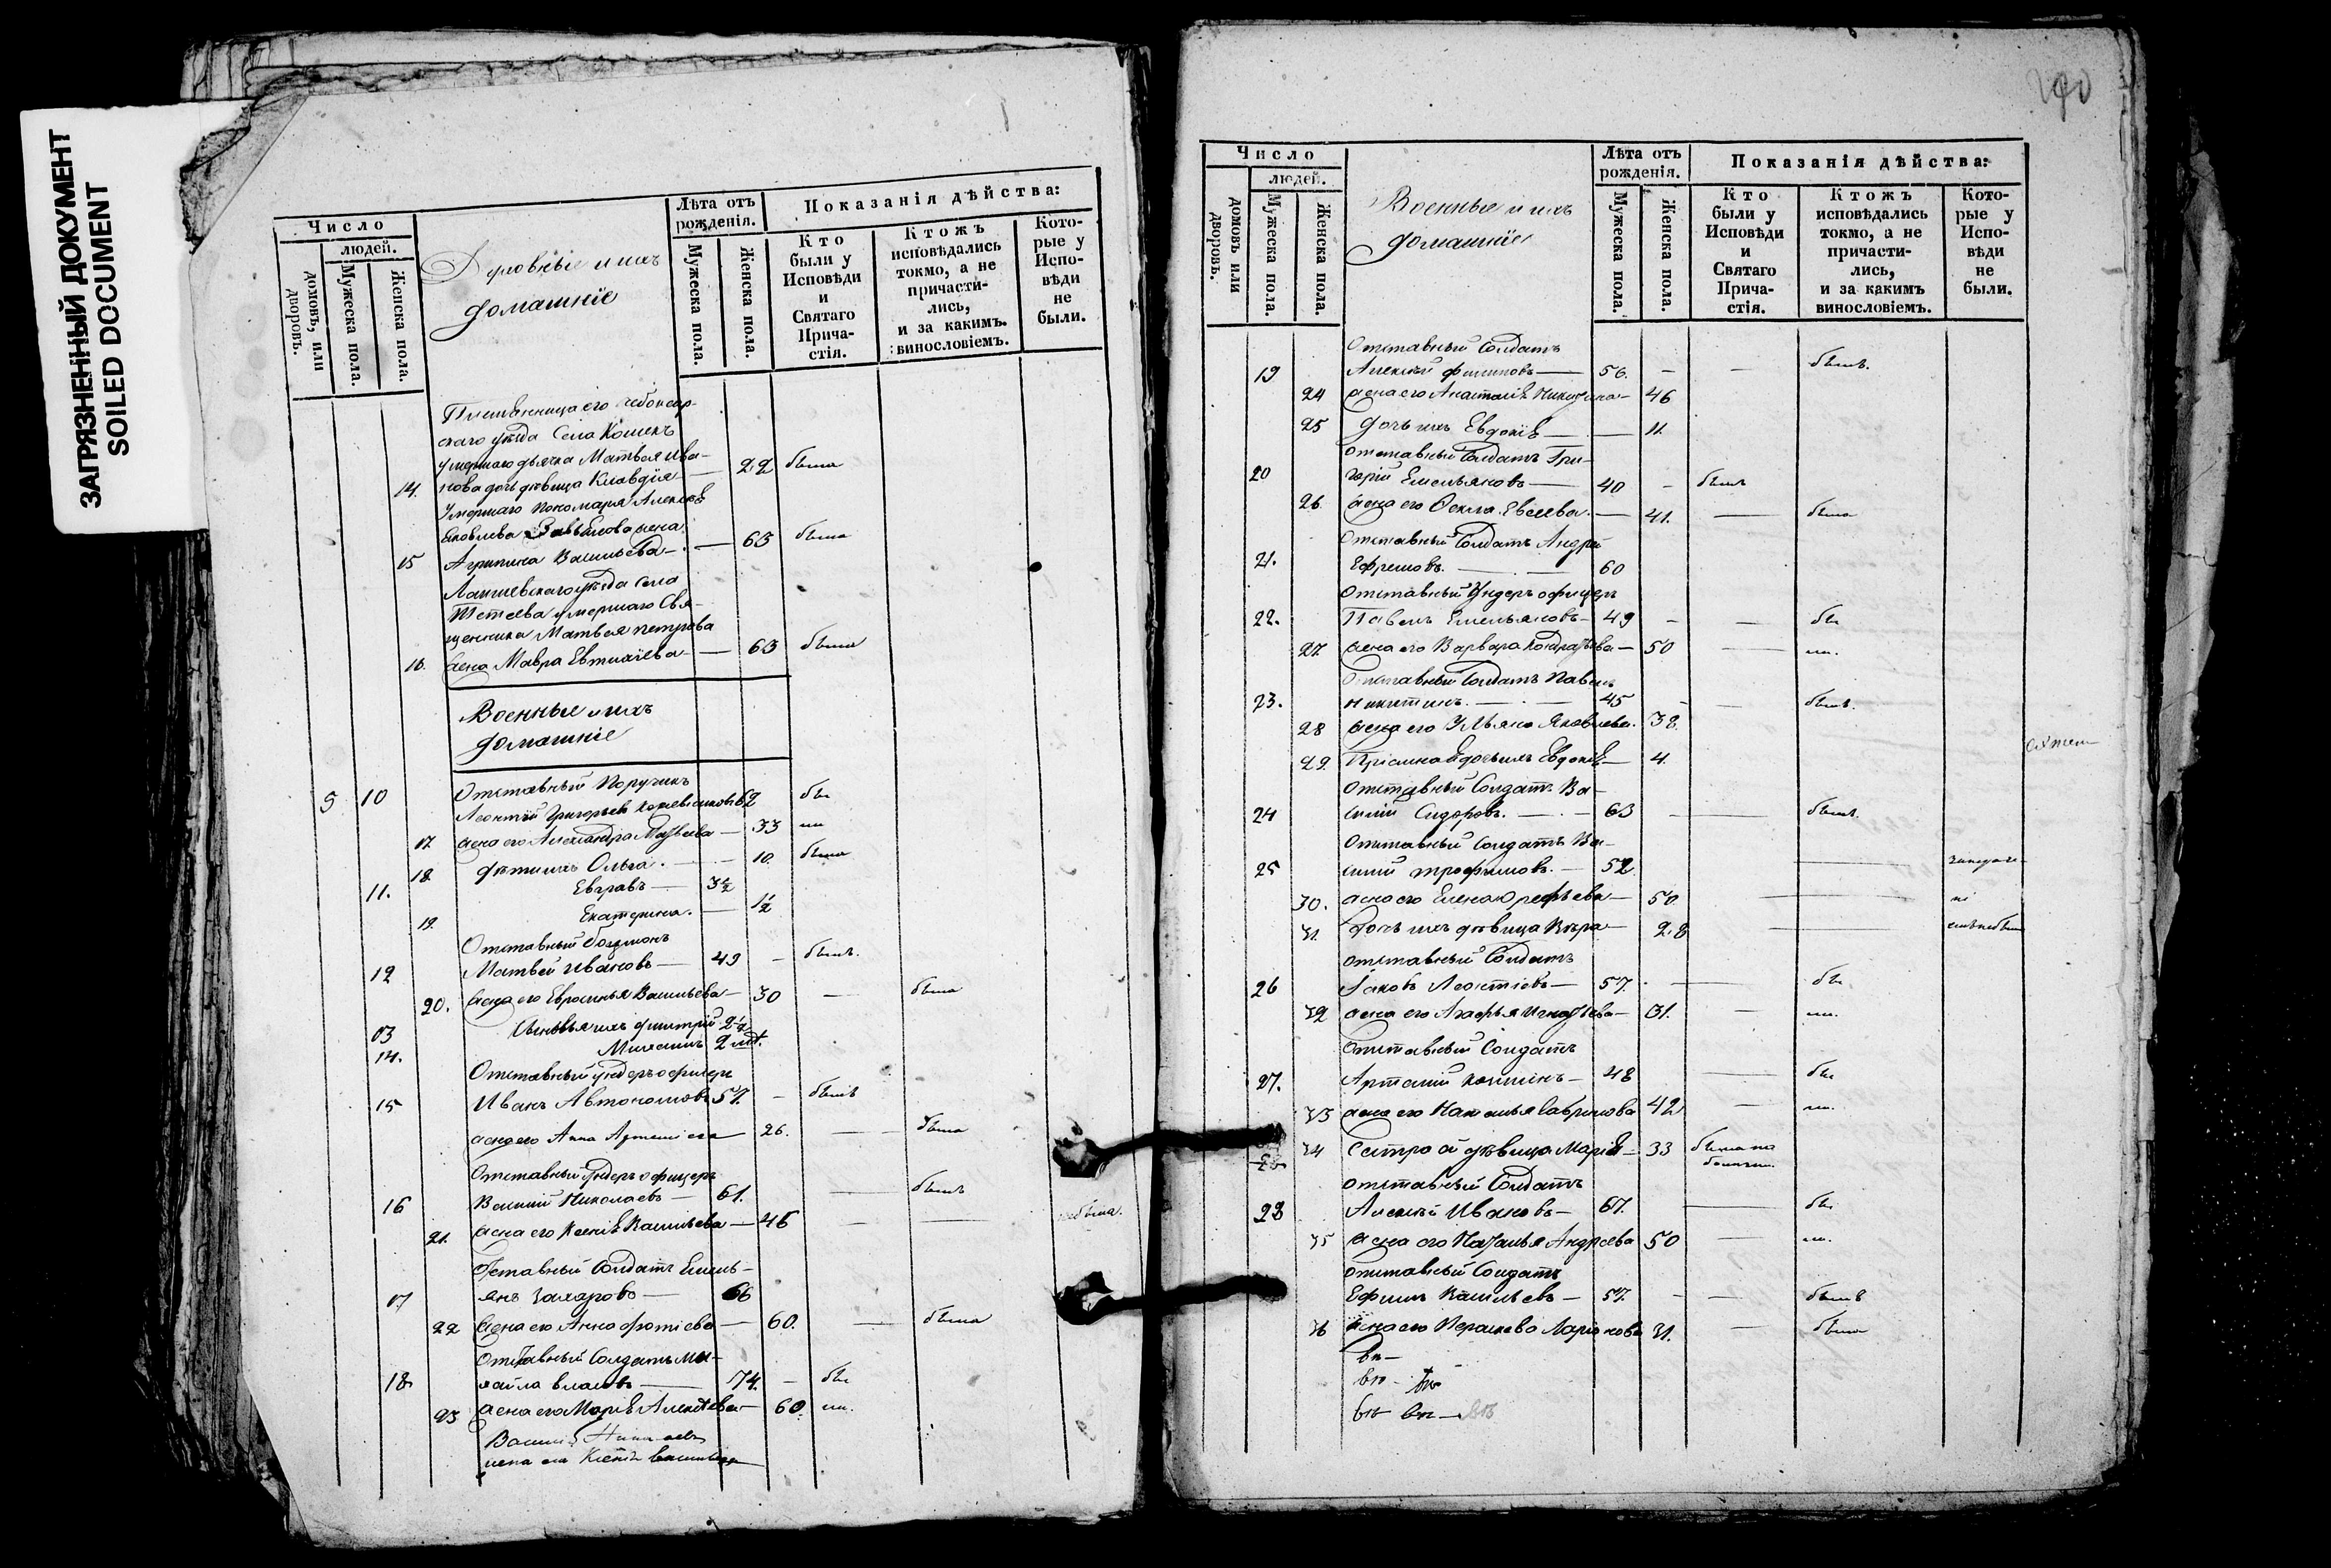 ЗАГРЯЗНЕННЫЙ ДОКУМЕНТ
SOILED DOCUMENT
Число
людей.
домовъ, или дворовъ.
Мужеска пола.
Женска пола.
Духовные и ихъ
домашніе
Лѣта отъ рожденія.
Мужеска пола.
Женска пола.
Показанія дѣйства:
Кто были у Исповѣди и Святаго Прича-стія.
Ктожъ исповѣдались токмо, а не причасти-лись, и за какимъ. винословіемъ.
Кото-рые у Испо-вѣди не были.
Племянница его Чебоксар-
скаго уѣзда Села Кошекъ
умершаго дьячка Матвея Ива-
14. нова дочь дѣвица Клавдія — 22 была
Умершаго пономаря Алексѣя
Яковлева жена
15 Агрипина Васильева — 63 была
Лаишевскаго уѣзда села
Тетеева умершаго Свя-
щенника Матвея петрова
16. жена Мавра Евтихіева — 63 была
Военные и ихъ
домашніе
9 10 Отставный Поручикъ
Леонтій Григорьевъ Кожевниковъ 62 бы
17 жена его Александра Матвеева — 33 ли
18. дѣти ихъ Ольга. — 10. была
11. Евграфъ — 3½
19. Екатерина. — 1½
Отставный боцманъ
12 Матвей Ивановъ — 49 — былъ.
20. жена его Евросинья Васильева — 30 — была
13 Сыновья ихъ Димитрій 2½
14. Михаилъ 2 нед.
Отставный ундеръ офицеръ
15 Иванъ Автономовъ 57. — былъ
жена его Анна Артемьева — 26. — была
Отставный ундеръ офицеръ
16 Василій Николаевъ — 61. — былъ
21. жена его Ксенія Васильева — 46 — — была.
Отставный Солдатъ Емель-
17 янъ Захаровъ — 66
22 жена его Анна Фотіева — 60. — была
Отставный Солдатъ Ми-
18. хайла Власовъ — 74. — бы
23 жена его Марія Алексѣева — 60. ли.
Василій Николаевъ
жена его Ксенія Васильева
290
Число
людей.
домовъ или дворовъ.
Мужеска пола.
Женска пола.
Военные и ихъ
домашніе
Лѣта отъ рожденія.
Мужеска пола.
Женска пола.
Показанія дѣйства:
Кто были у Исповѣди и Святаго Прича-стія.
Ктожъ исповѣдались токмо, а не причасти-лись, и за какимъ винословіемъ.
Кото-рые у Испо-вѣди не были.
Отставный Солдатъ
19 Алексѣй Филиповъ — 56. — — былъ.
24 жена его Анастасія Никитина — 46
25 дочь ихъ Евдокія — — 11.
отставный Солдатъ Гри-
20 горій Емельяновъ — 40 — былъ
26 жена его Фекла Евсеева. — 41. — была
Отставный Солдатъ Андрей
21. Ефремовъ. — — 60
отставный Ундеръ офицеръ
22. Павелъ Емельяновъ — 49 — — бы
27. жена его Варвара Кондратьева — 50 — ли.
Отставный Солдатъ Павелъ
23. Никитинъ. — — 45 — — былъ.
28 жена его Ульяна Яковлева. 38.
29. Пріемная дочь ихъ Евдокія — 4.
Отставный Солдатъ Ва-
24 силій Сидоровъ. — — 63 — — былъ.
Отставный Солдатъ Ва-
25 силій Трофимовъ. — 52 —
30. жена его Елена Орефьева — 50 —
31. Дочь ихъ дѣвица Вѣра — 28 —
отставный Солдатъ
26 Іаковъ Леонтіевъ — 57. — бы
32 жена его Агафья Игнатьева — 31. — ли.
Отставный Солдатъ
27. Артамій — 48 — бы
33 жена его Наталья Гаврилова 42 — ли.
34 Сестра ей дѣвица Марія — 33 была
отставный Солдатъ
28 Алексѣй Ивановъ — 67. — бы
35 жена его Наталья Андреева 50 — ли.
отставный Солдатъ
Ефимъ Васильевъ — 57. — — былъ
36 жена его Парасковья Ларіонова 31. — была